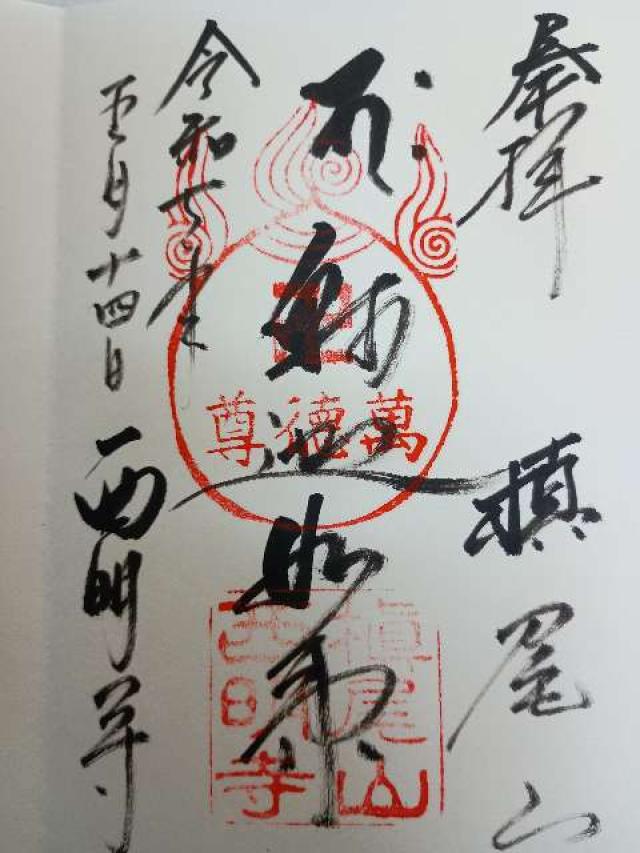 奉拝
槇尾山
釈迦如来
令和七年
五月十四日
西明寺
萬徳尊
槇尾山
西明寺